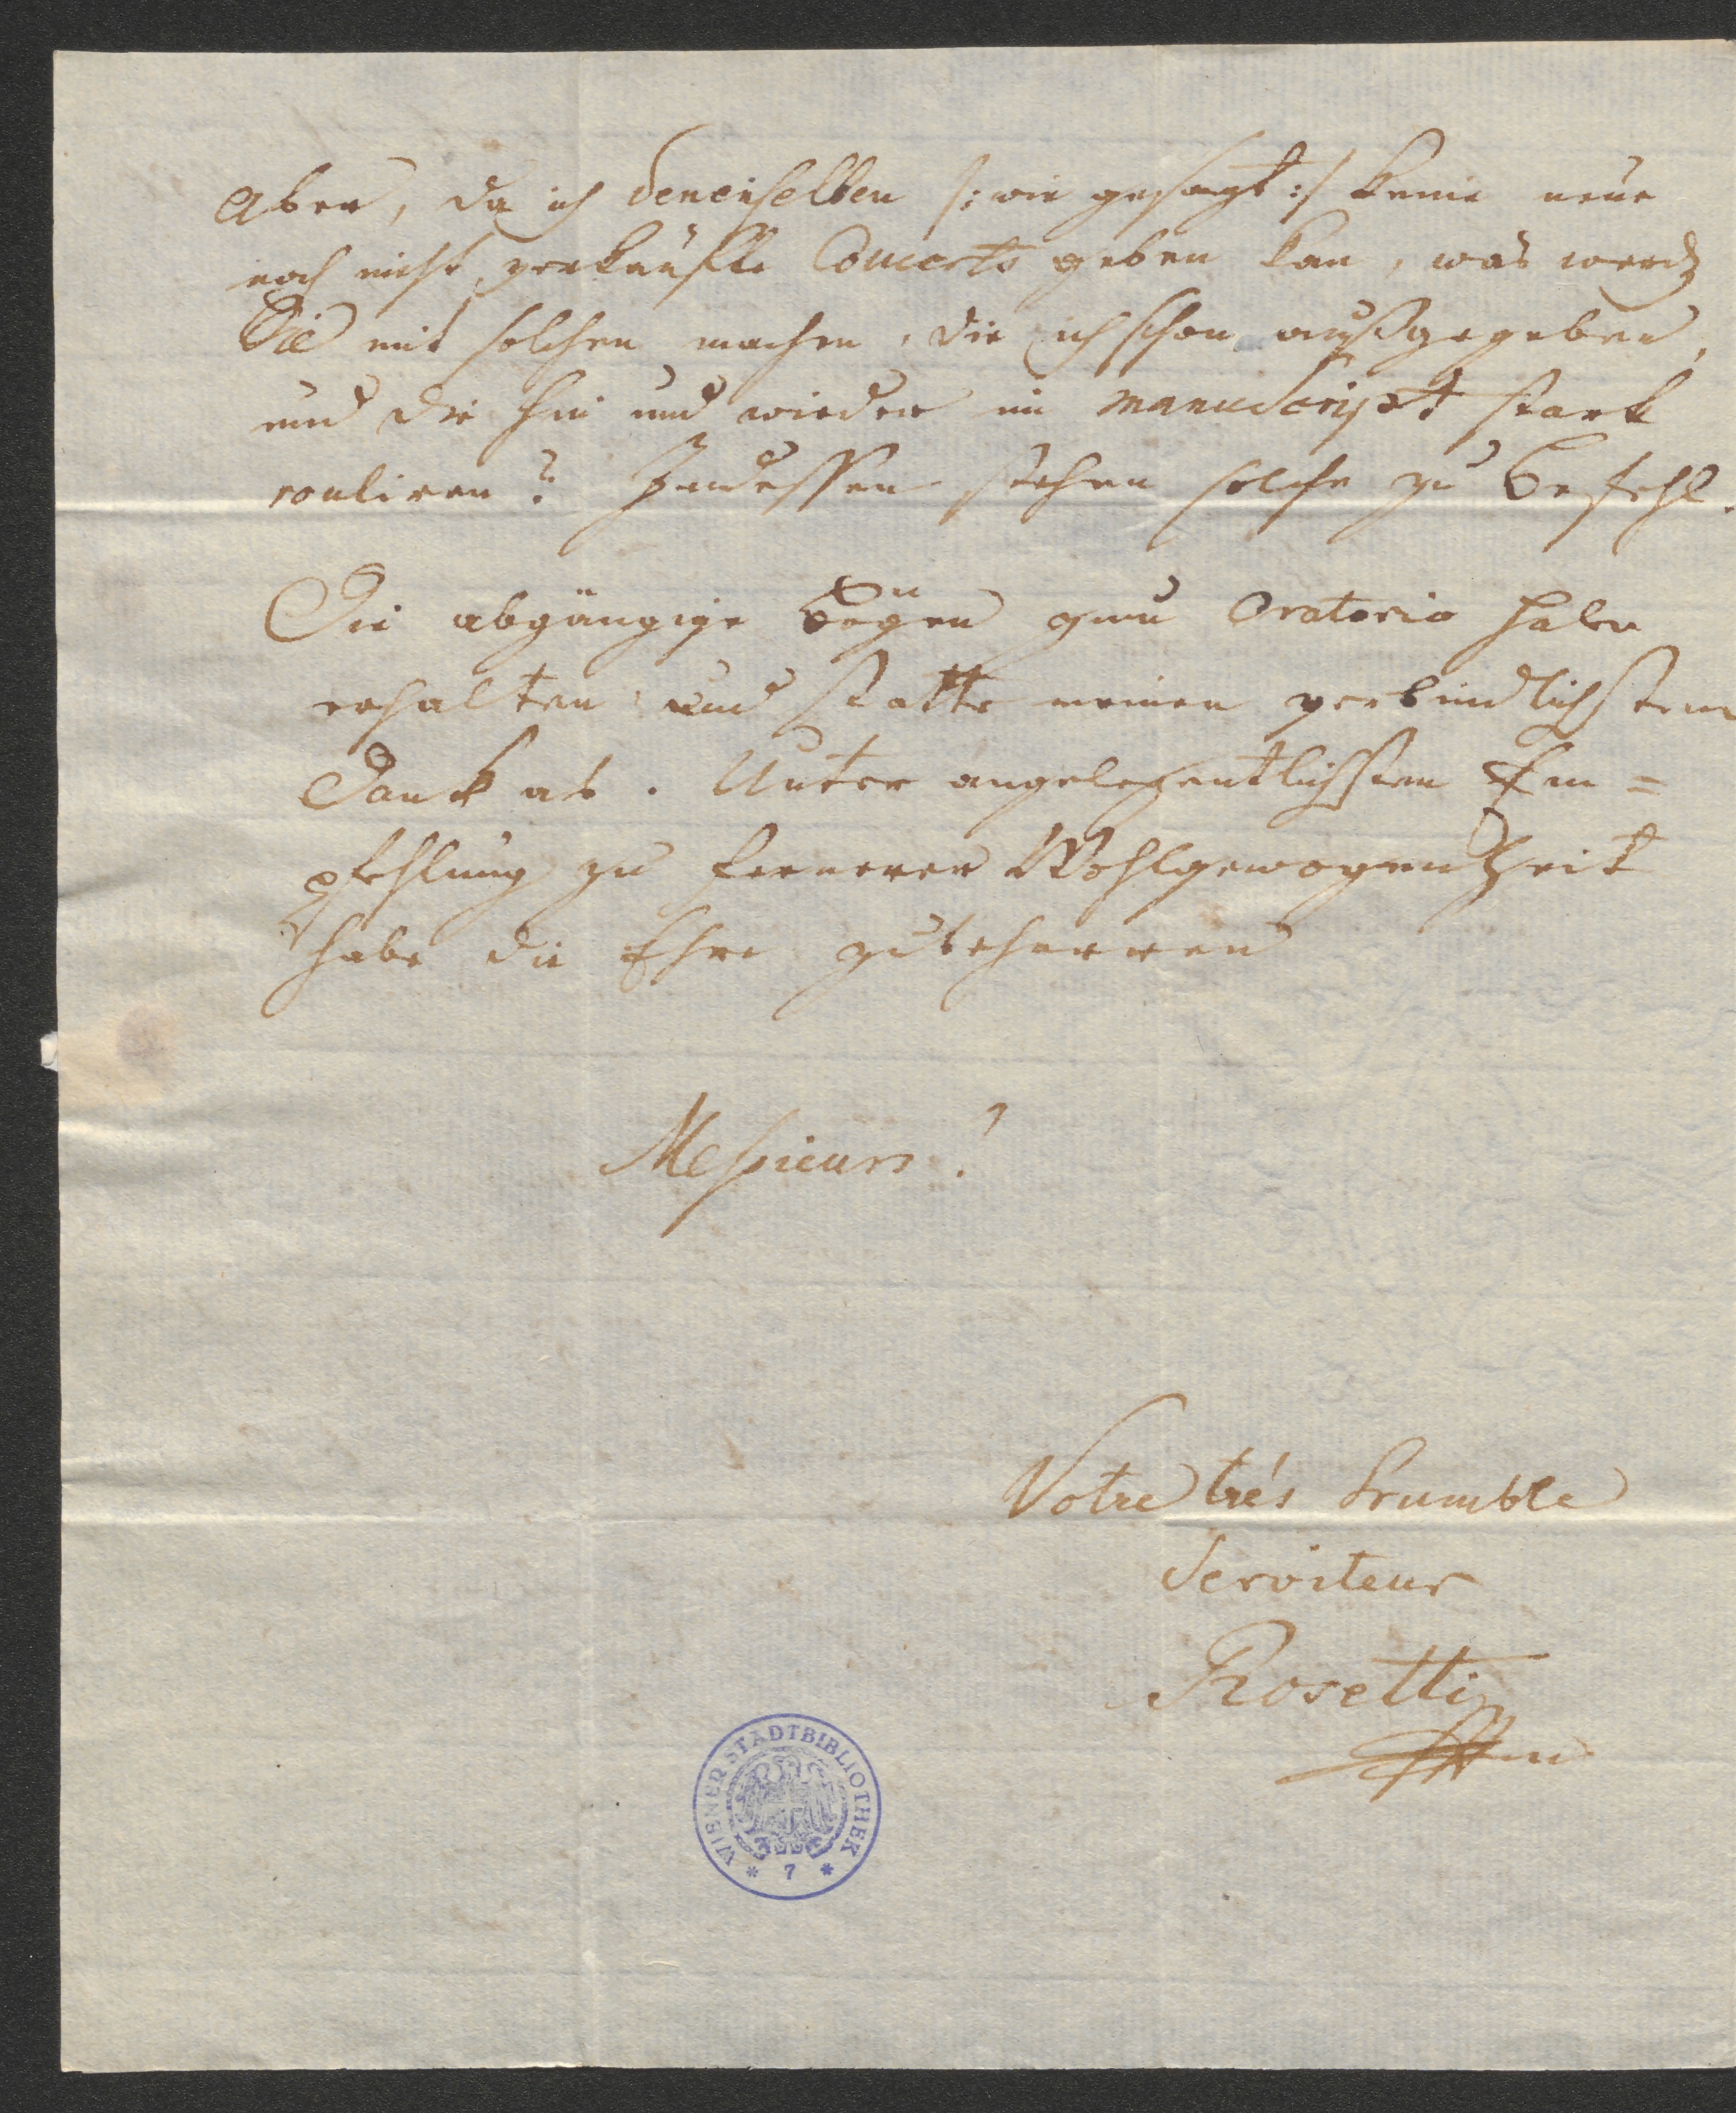 Aber, da ich denenselben /: wie gesagt :/ keine neue
noch nicht verkaufte Concerts geben kan, was werdn
Sie mit solchen machen, die ich schon außgegeben,
und die hin und wieder im manuscript stark
rouliren? Indessen stehen solche zu Befehl.
Die abgängige Bögen zum Oratorio habe
erhalten und statte meinen verbindlichsten
Danck ab. Unter angelegentlichster Em=
pfehlung zu fernerer Wohlgewogenheit
habe die Ehre zu beharren
Messieurs!
Votre trés humble
Serviteur
Rosetti
WIENER STADTBIBLIOTHEK
* 7 *